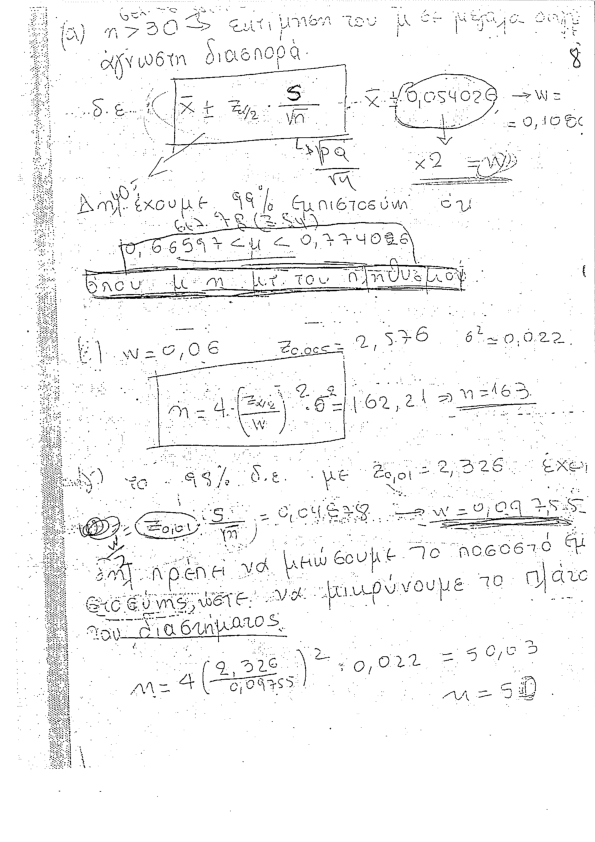 (α) n>30 εκτίμηση του μ σε μεγάλα
άγνωστη διασπορά.
8
δ.ε. : x̄ ± z_{α/2} · S/√n x̄ ± 0,054026 → w=
= 0,108
pq/√n
×2 = w
Δηλ. έχουμε 99% εμπιστοσύνη ότι
0,66597 < μ < 0,774026
όπου μ η μτ. του πληθυσμού
w = 0,06 z_{0.005} = 2,576 σ² = 0,022.
n = 4·(z_{α/2}/w)²·σ² = 162,21 ⇒ n=163
γ) το 98% δ.ε. με z_{0,01} = 2,326 έχει
w/2 = z_{0,01} · S/√n = 0,04878 → w = 0,09755
δηλ πρέπει να μειώσουμε το ποσοστό εμ
στοσύνης, ώστε να μικρύνουμε το πλάτο
του διαστήματος.
n = 4(2,326/0,09755)² · 0,022 = 50,03
n = 50